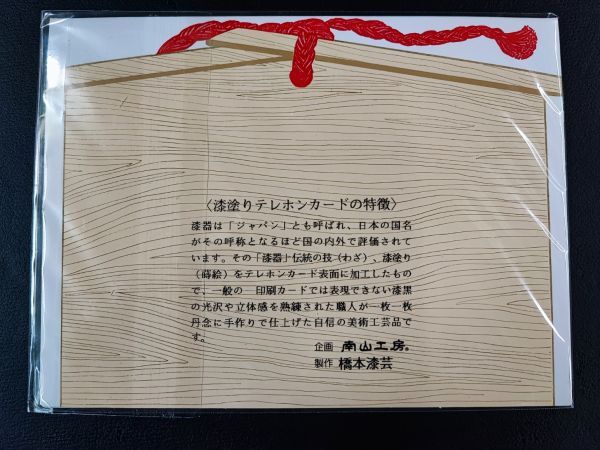 〈漆塗りテレホンカードの特徴〉
漆器は「ジャパン」とも呼ばれ、日本の国名
がその呼称となるほど国の内外で評価されて
います。その「漆器」伝統の技(わざ)、漆塗り
(蒔絵)をテレホンカード表面に加工したもの
で、一般の 印刷カードでは表現できない漆黒
の光沢や立体感を熟練された職人が一枚一枚
丹念に手作りで仕上げた自信の美術工芸品で
す。
企画 南山工房
製作 橋本漆芸